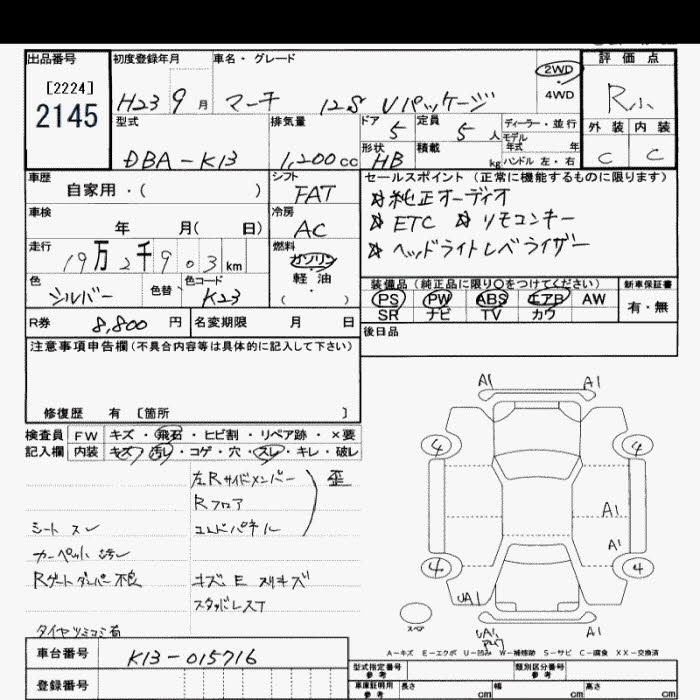 出品番号
[2224]
2145
初度登録年月
H23 9月
車名・グレード
マーチ 12S Vパッケージ
2WD
4WD
評価点
R小
外装 内装
C C
型式
DBA-K13
排気量
1,200cc
ドア
5
定員
5人
形状
HB
積載
kg
ディーラー・並行
モデル
年式 年
ハンドル 左・右
車歴
自家用・( )
シフト
FAT
セールスポイント(正常に機能するものに限ります)
☆純正オーディオ
☆ETC ☆リモコンキー
☆ヘッドライトレベライザー
車検
年 月( 日)
冷房
AC
走行
19万2千903km
燃料
ガソリン
軽油
( )
色
シルバー
色替
色コード
K23
装備品(純正品に限り〇をつけてください)
PS PW ABS エアB AW
SR ナビ TV カワ
新車保証書
有・無
R券
8,800円
名変期限 月 日
後日品
注意事項申告欄(不具合内容等は具体的に記入して下さい)
修復歴 有 [箇所 ]
検査員
記入欄
FW キズ・飛石・ヒビ割・リペア跡・×要
内装 キズ・汚レ・コゲ・穴・スレ・キレ・破レ
左Rサイドメンバー
Rフロア
エンドパネル
歪
シート スレ
カーペット 汚レ
Rゲートダンパー不良
キズ E スリキズ
スタッドレスT
タイヤツミコミ有
A1 A1
4 4
A1
A1
4 4
UA1
スペア
UA1
A1
A-キズ E-エクボ U-凹み W-補修跡 S-サビ C-腐食 XX-交換済
車台番号
K13-015716
登録番号
型式指定番号
参考
類別区分番号
参考
車庫証明用
参考
長さ cm
幅 cm
高さ cm